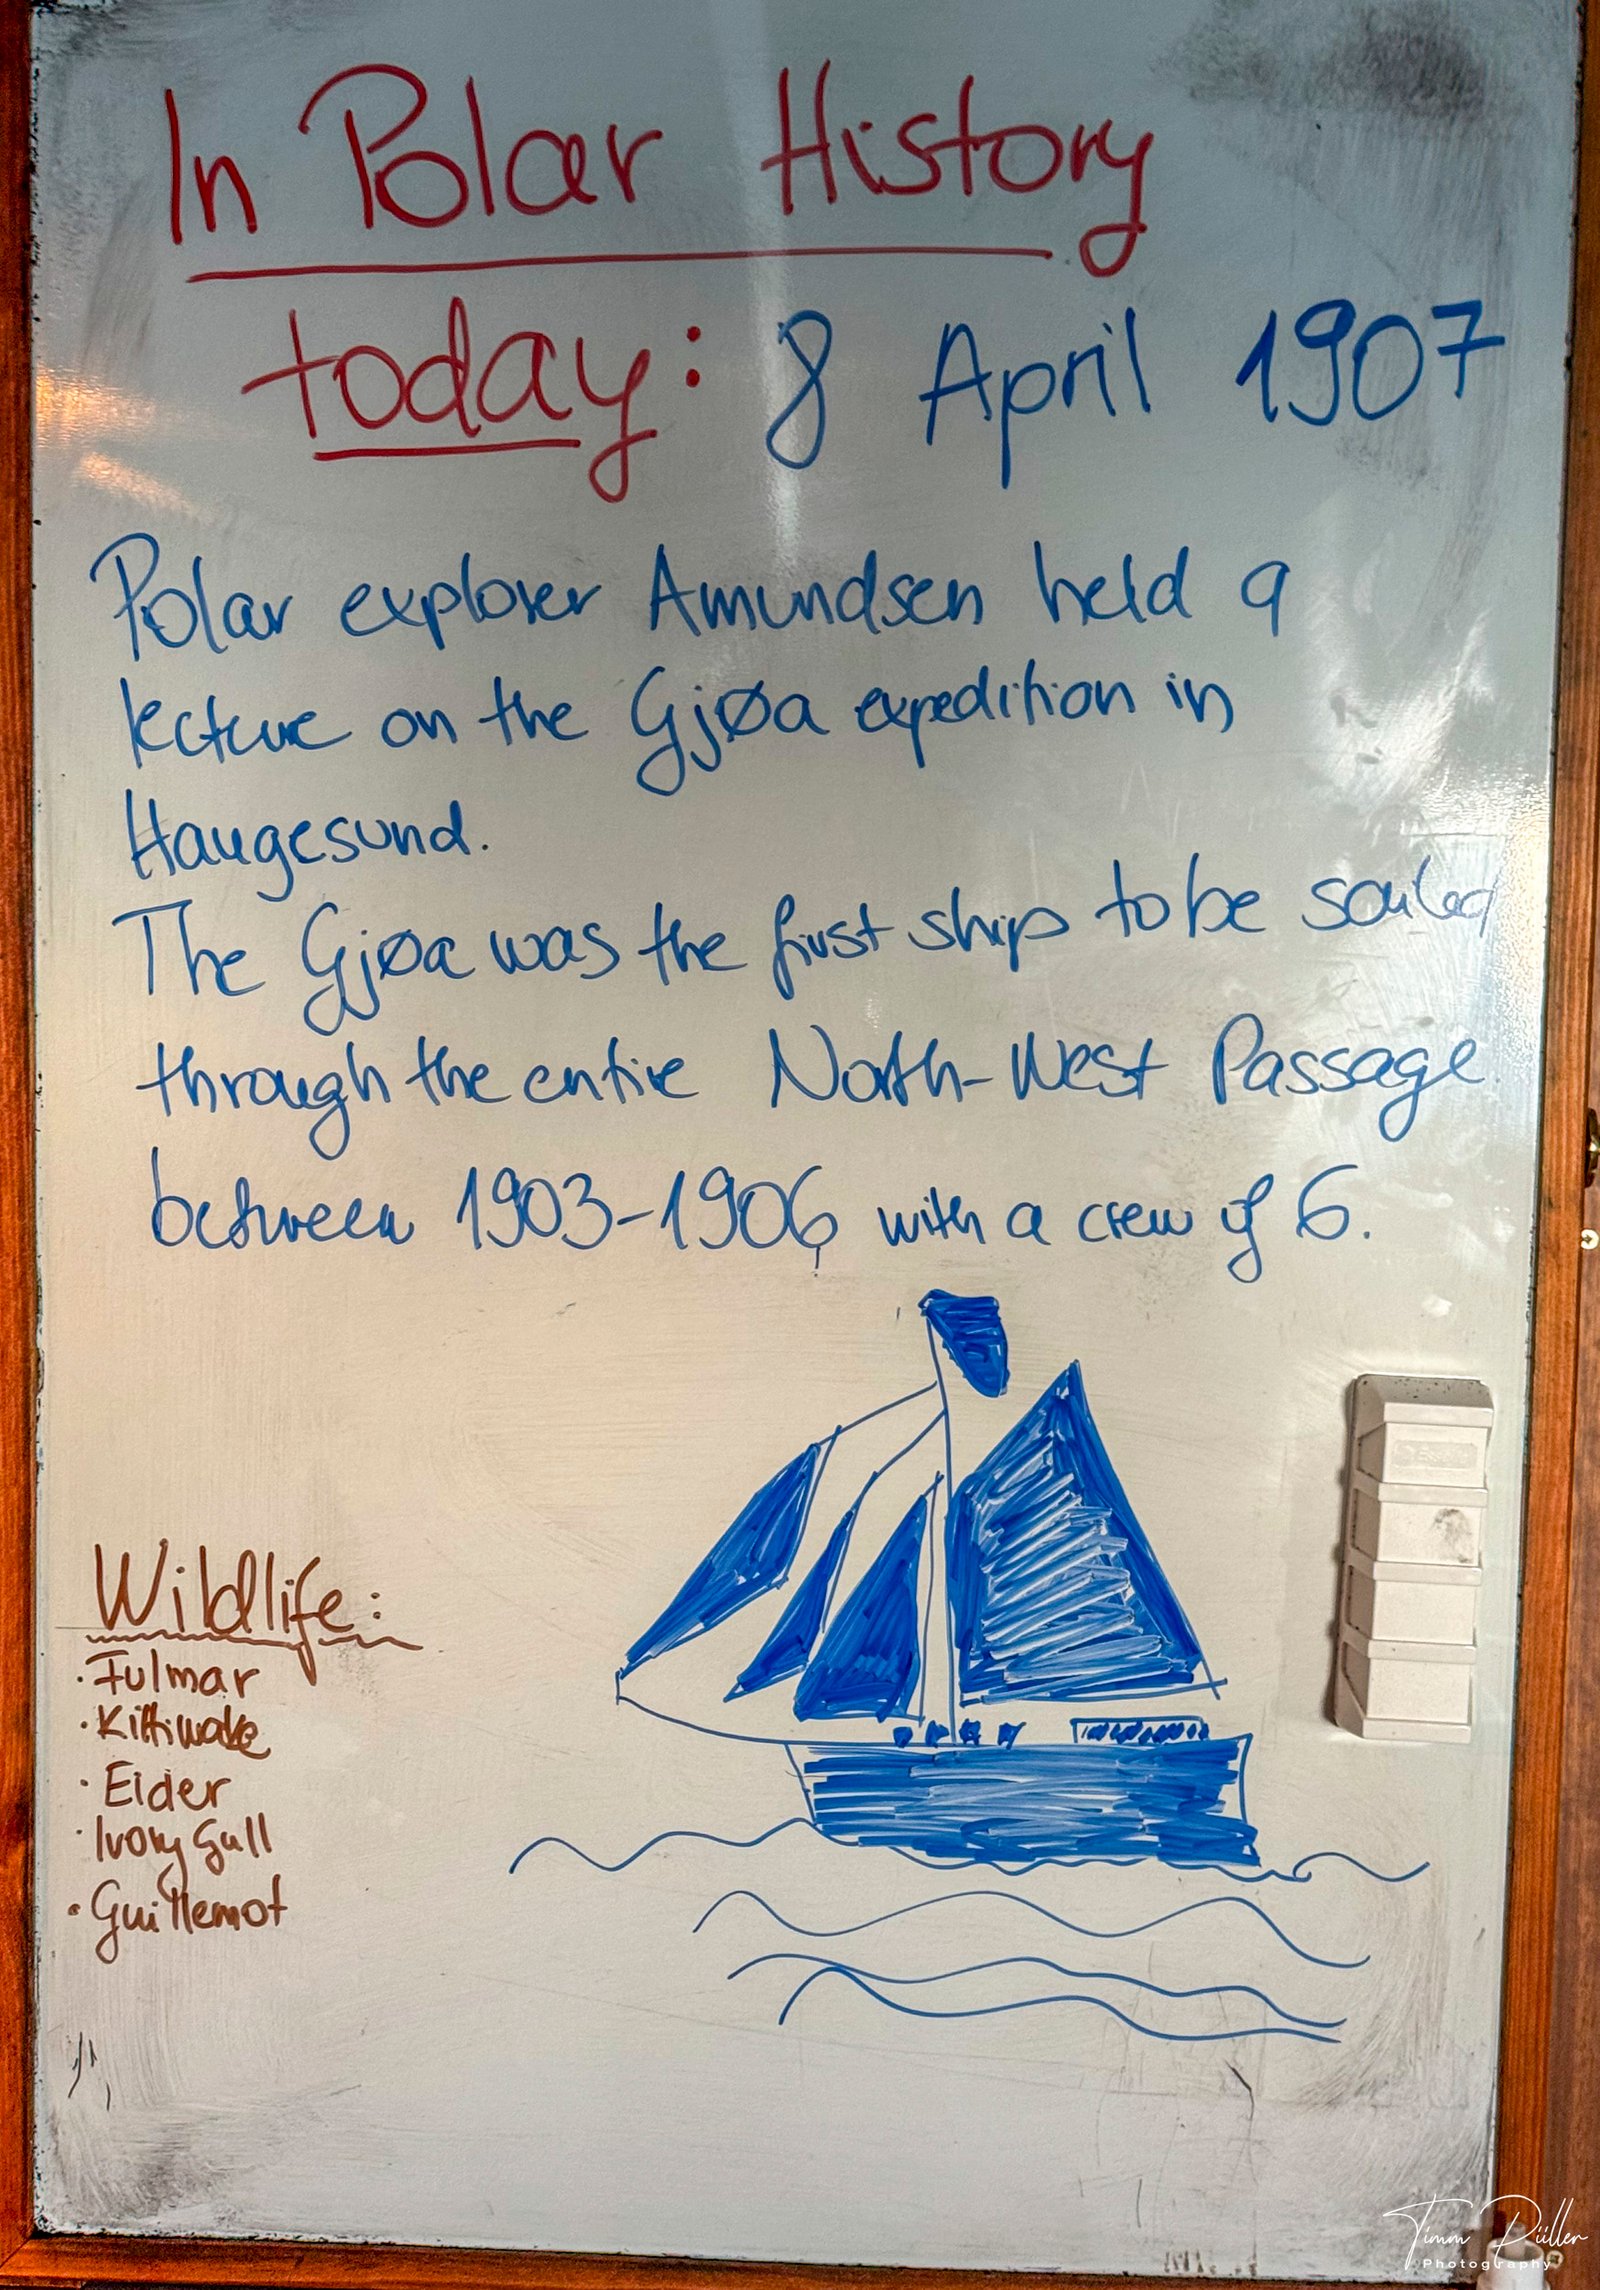 In Polar History
today: 8 April 1907
Polar explorer Amundsen held a
lecture on the Gjøa expedition in
Haugesund.
The Gjøa was the first ship to be sailed
through the entire North-West Passage
between 1903-1906 with a crew of 6.
Wildlife:
· Fulmar
· Kittiwake
· Eider
· Ivory Gull
· Guillemot
Timm Püller
Photography